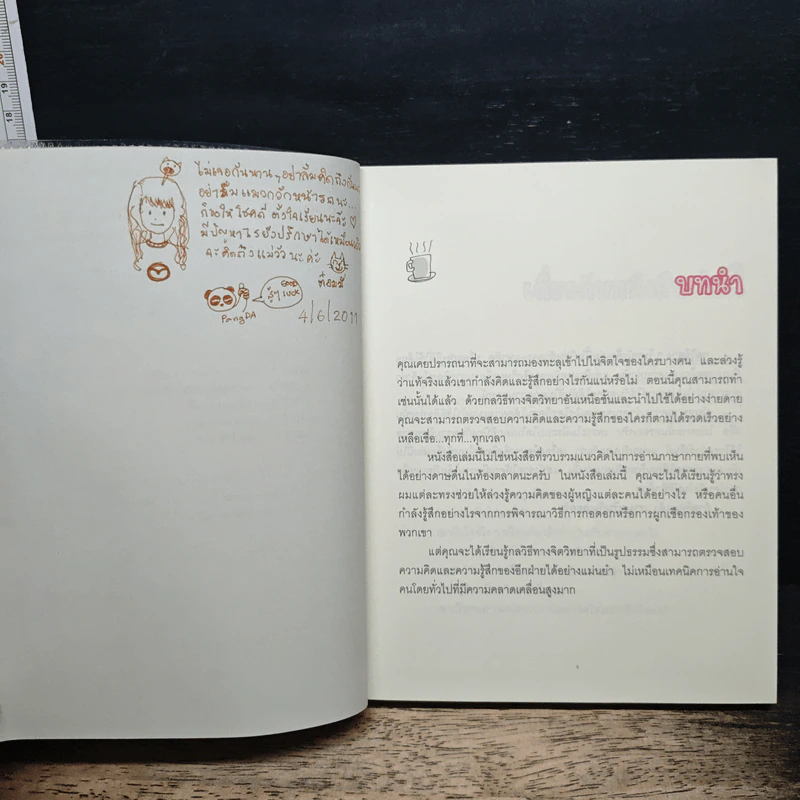 ไม่เจอกันนาน ๆ อย่าลืมคิดถึงกันนะ
อย่าลืมแมวกวักหน้ารถนะ...
ก็ขอให้โชคดี ตั้งใจเรียนนะจ๊ะ ♡
มีปัญหาไรยังปรึกษาได้เหมือนเดิม
จะคิดถึงแม่วัวนะค่ะ
สู้ๆ
GOOD
LUCK
PangDA
4/6/2011
บทนำ
คุณเคยปรารถนาที่จะสามารถมองทะลุเข้าไปในจิตใจของใครบางคน และล่วงรู้
ว่าแท้จริงแล้วเขากำลังคิดและรู้สึกอย่างไรกันแน่หรือไม่ ตอนนี้คุณสามารถทำ
เช่นนั้นได้แล้ว ด้วยกลวิธีทางจิตวิทยาอันเหนือชั้นและนำไปใช้ได้อย่างง่ายดาย
คุณจะสามารถตรวจสอบความคิดและความรู้สึกของใครก็ตามได้รวดเร็วอย่าง
เหลือเชื่อ...ทุกที่...ทุกเวลา
หนังสือเล่มนี้ไม่ใช่หนังสือที่รวบรวมแนวคิดในการอ่านภาษากายที่พบเห็น
ได้อย่างดาษดื่นในท้องตลาดนะครับ ในหนังสือเล่มนี้ คุณจะไม่ได้เรียนรู้ว่าทรง
ผมแต่ละทรงช่วยให้ล่วงรู้ความคิดของผู้หญิงแต่ละคนได้อย่างไร หรือคนอื่น
กำลังรู้สึกอย่างไรจากการพิจารณาวิธีการกอดอกหรือการผูกเชือกรองเท้าของ
พวกเขา
แต่คุณจะได้เรียนรู้กลวิธีทางจิตวิทยาที่เป็นรูปธรรมซึ่งสามารถตรวจสอบ
ความคิดและความรู้สึกของอีกฝ่ายได้อย่างแม่นยำ ไม่เหมือนเทคนิคการอ่านใจ
คนโดยทั่วไปที่มีความคลาดเคลื่อนสูงมาก